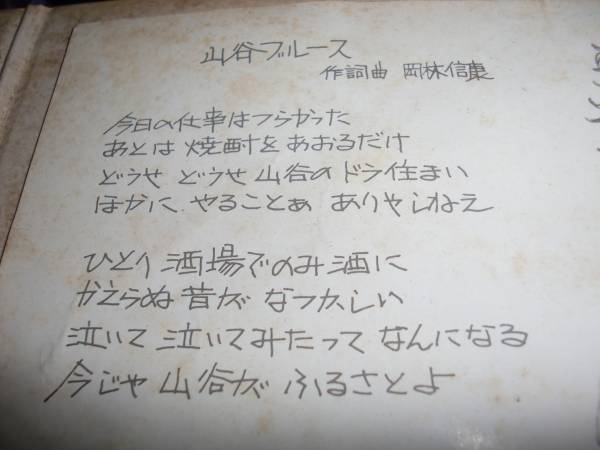 山谷ブルース
作詞曲 岡林信康
今日の仕事はつらかった
あとは焼酎をあおるだけ
どうせ どうせ 山谷の ドヤ住まい
ほかに やることぁ ありゃしねえ
ひとり 酒場でのみ酒に
かえらぬ昔が なつかしい
泣いて 泣いてみたって なんになる
今じゃ 山谷が ふるさとよ